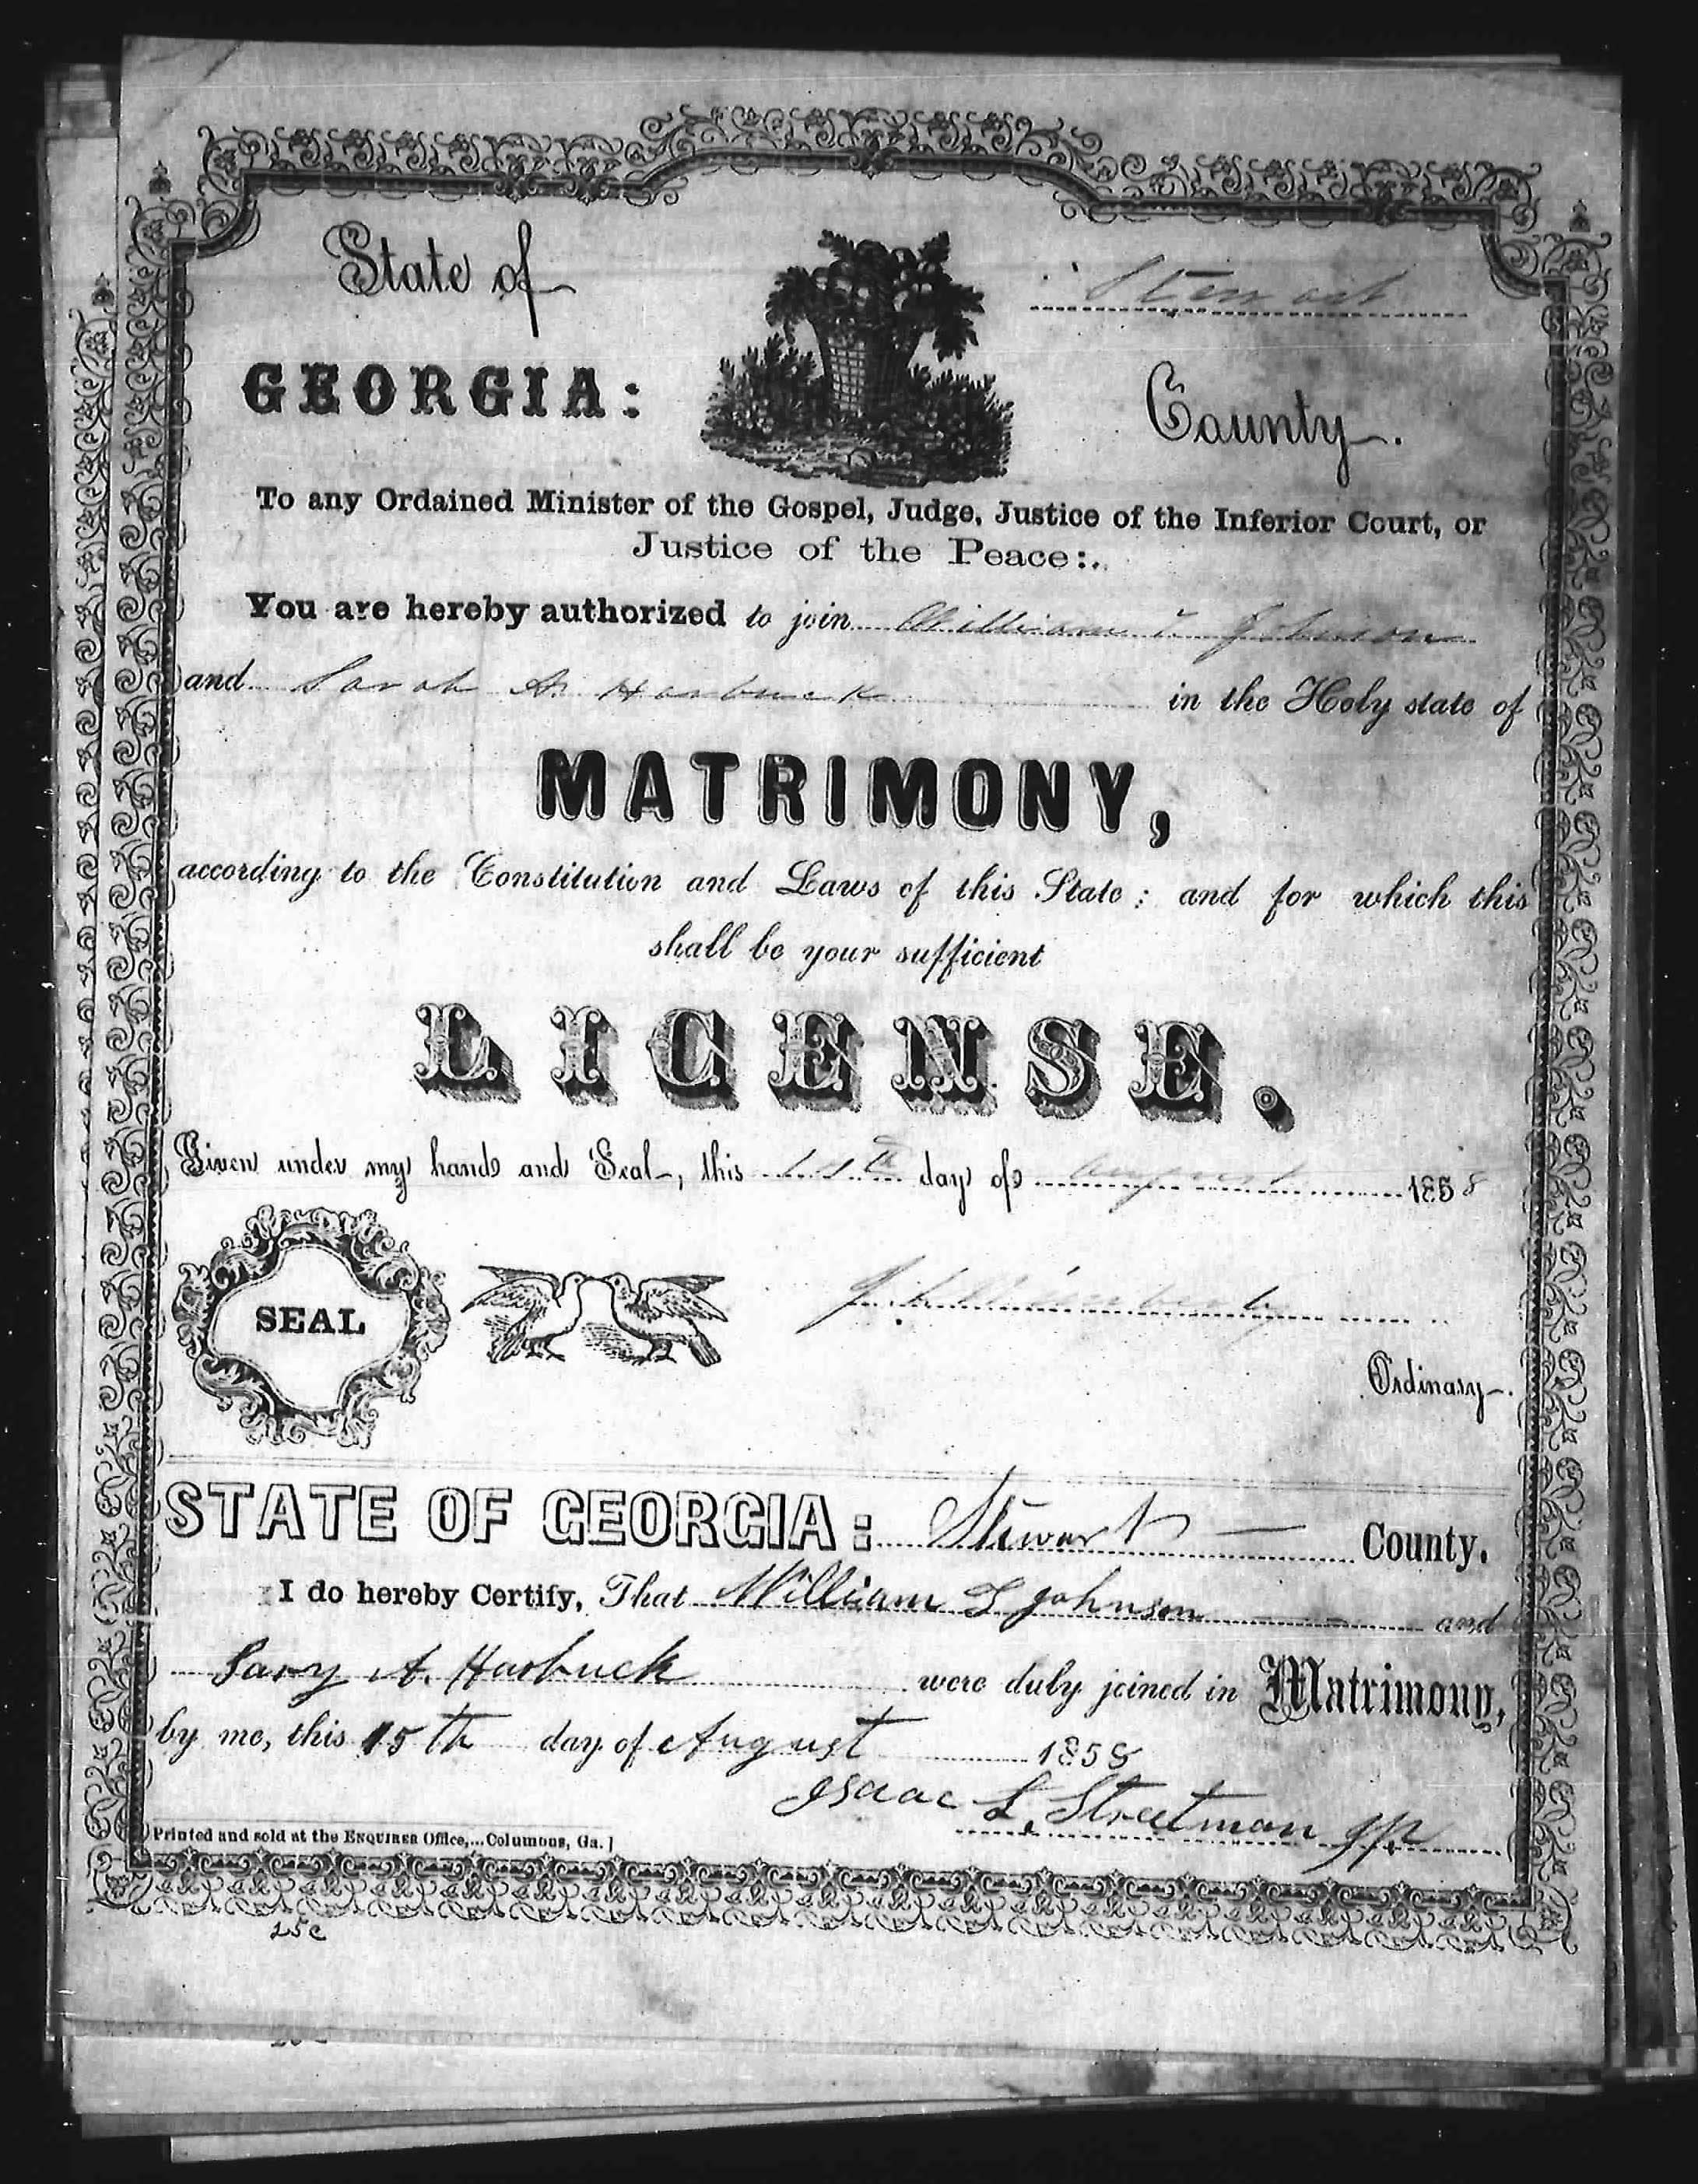 State of
Stewart
GEORGIA:
County.
To any Ordained Minister of the Gospel, Judge, Justice of the Inferior Court, or
Justice of the Peace:.
You are hereby authorized to join William Johnson
and Sarah A. Harbuck in the Holy state of
MATRIMONY,
according to the Constitution and Laws of this State: and for which this
shall be your sufficient
LICENSE.
Given under my hand and Seal, this day of August 1858
SEAL
Ordinary.
STATE OF GEORGIA: Stewart County.
I do hereby Certify, That William Johnson and
Sary A. Harbuck were duly joined in Matrimony,
by me, this 15th day of August 1858
Isaac L. Streetman JP
Printed and sold at the ENQUIRER Office,... Columbus, Ga.]
25c